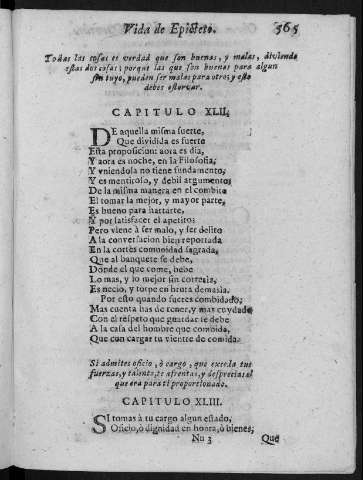 Vida de Epicteto. 565
Todas las cosas es verdad que son buenas, y malas, diviende
estas dos cosas; porque las que son buenas para algun
fin tuyo, pueden ser malas para otro; y esto
debes estorvar.
CAPITULO XLII.
DE aquella misma suerte,
Que dividida es fuerte
Esta proposicion: aora es dia,
Y aora es noche, en la Filosofia;
Y vniendola no tiene fundamento,
Y es mentiroso, y debil argumento;
De la misma manera en el combite
El tomar la mejor, y mayor parte,
Es bueno para hartarte,
Y por satisfacer el apetito;
Pero viene à ser malo, y ser delito
A la conversacion bien reportada
En la cortès comunidad sagrada,
Que al banquete se debe,
Donde el que come, bebe
Lo mas, y lo mejor sin cortesia,
Es necio, y torpe en bruta demasia.
Por esto quando fueres combidado,
Mas cuenta has de tener, y mas cuydado
Con el respeto que guardar se debe
A la casa del hombre que combida,
Que con cargar tu vientre de comida.
Si admites oficio, ò cargo, que exceda tus
fuerzas, y talento, te afrentas, y desprecias al
que era para ti proporcionado.
CAPITULO XLIII.
SI tomas à tu cargo algun estado,
Oficio, ò dignidad en honra, ò bienes;
Nn 3 Que